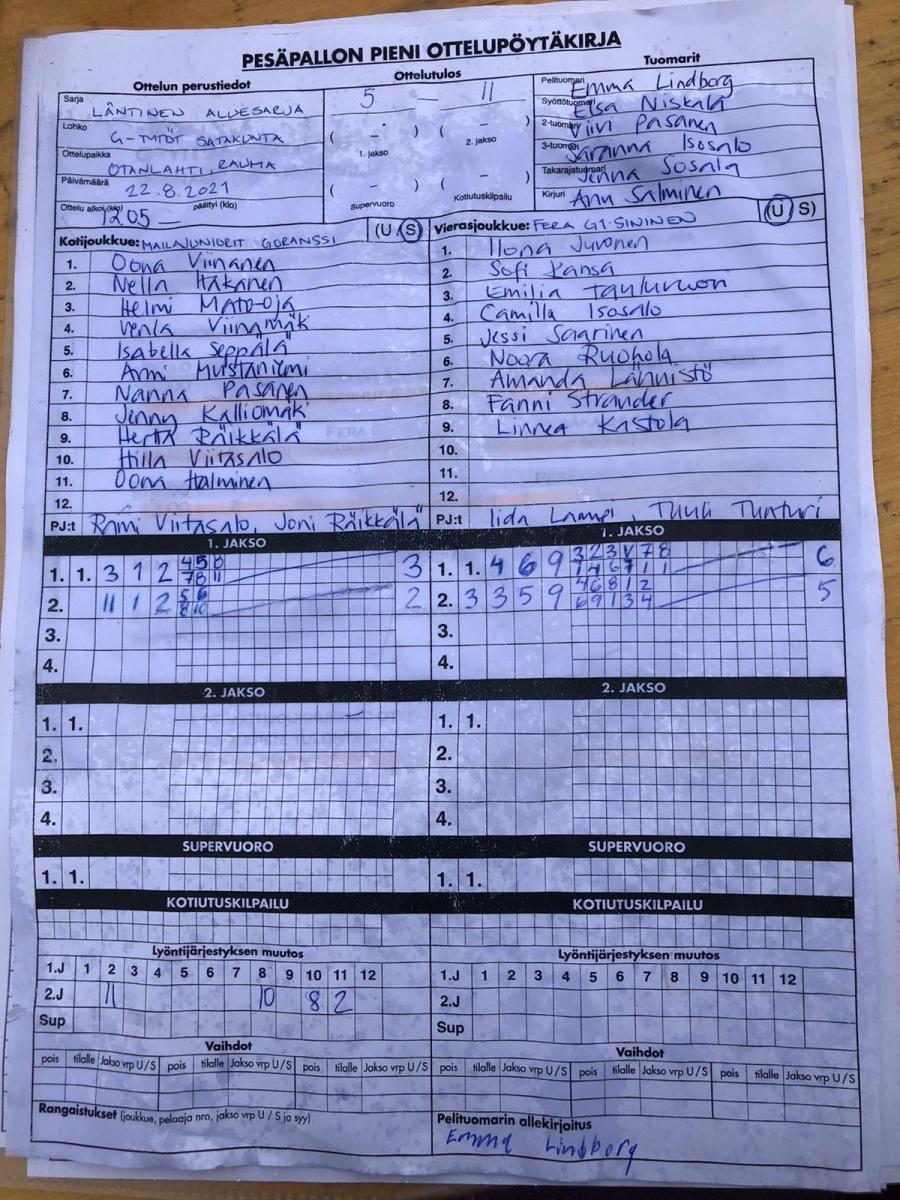 PESÄPALLON PIENI OTTELUPÖYTÄKIRJA
Ottelun perustiedot
Sarja LÄNTINEN ALUESARJA
Lohko G-TYTÖT SATAKUNTA
Ottelupaikka OTANLAHTI, RAUMA
Päivämäärä 22.8.2021
Ottelu alkoi (klo) 12.05 päättyi (klo)
Ottelutulos
5 — 11
( – ) ( – )
1. jakso 2. jakso
( – ) ( – )
Supervuoro Kotiutuskilpailu
Tuomarit
Pelituomari Emma Lindborg
Syöttötuomari Elsa Niskala
2-tuomari Viivi Pasanen
3-tuomari Saranna Isosalo
Takarajatuomari Jenna Sosala
Kirjuri Anu Salminen
Kotijoukkue: MAILAJUNIORIT GORANSSI (U S)
1. Oona Viinanen
2. Nella Hakanen
3. Helmi Mato-oja
4. Venla Viinamäk
5. Isabella Seppälä
6. Anni Mustaniemi
7. Nanna Pasanen
8. Jenny Kalliomäki
9. Herta Räikkälä
10. Hilla Viitasalo
11. Oona Halminen
12.
PJ:t Rami Viitasalo, Joni Räikkälä
Vierasjoukkue: FERA G1-SININEN (U S)
1. Ilona Juvonen
2. Sofi Kansa
3. Emilia Tauluvuori
4. Camilla Isosalo
5. Jessi Saarinen
6. Noora Ruohola
7. Amanda Lännistö
8. Fanni Strander
9. Linnea Kastola
10.
11.
12.
PJ:t Iida Lampi, Tuuli Tunturi
1. JAKSO
1. 1. 3 1 2 3
2. 11 1 2 2
3.
4.
1. JAKSO
1. 1. 4 6 9 6
2. 3 3 5 9 5
3.
4.
2. JAKSO
1. 1.
2.
3.
4.
2. JAKSO
1. 1.
2.
3.
4.
SUPERVUORO
1. 1.
SUPERVUORO
1. 1.
KOTIUTUSKILPAILU
KOTIUTUSKILPAILU
Lyöntijärjestyksen muutos
1.J 1 2 3 4 5 6 7 8 9 10 11 12
2.J 11 10 8 2
Sup
Lyöntijärjestyksen muutos
1.J 1 2 3 4 5 6 7 8 9 10 11 12
2.J
Sup
Vaihdot
pois tilalle Jakso vrp U/S pois tilalle Jakso vrp U/S pois tilalle Jakso vrp U/S
Vaihdot
pois tilalle Jakso vrp U/S pois tilalle Jakso vrp U/S pois tilalle Jakso vrp U/S
Rangaistukset (joukkue, pelaaja nro, jakso vrp U / S ja syy)
Pelituomarin allekirjoitus
Emma Lindborg